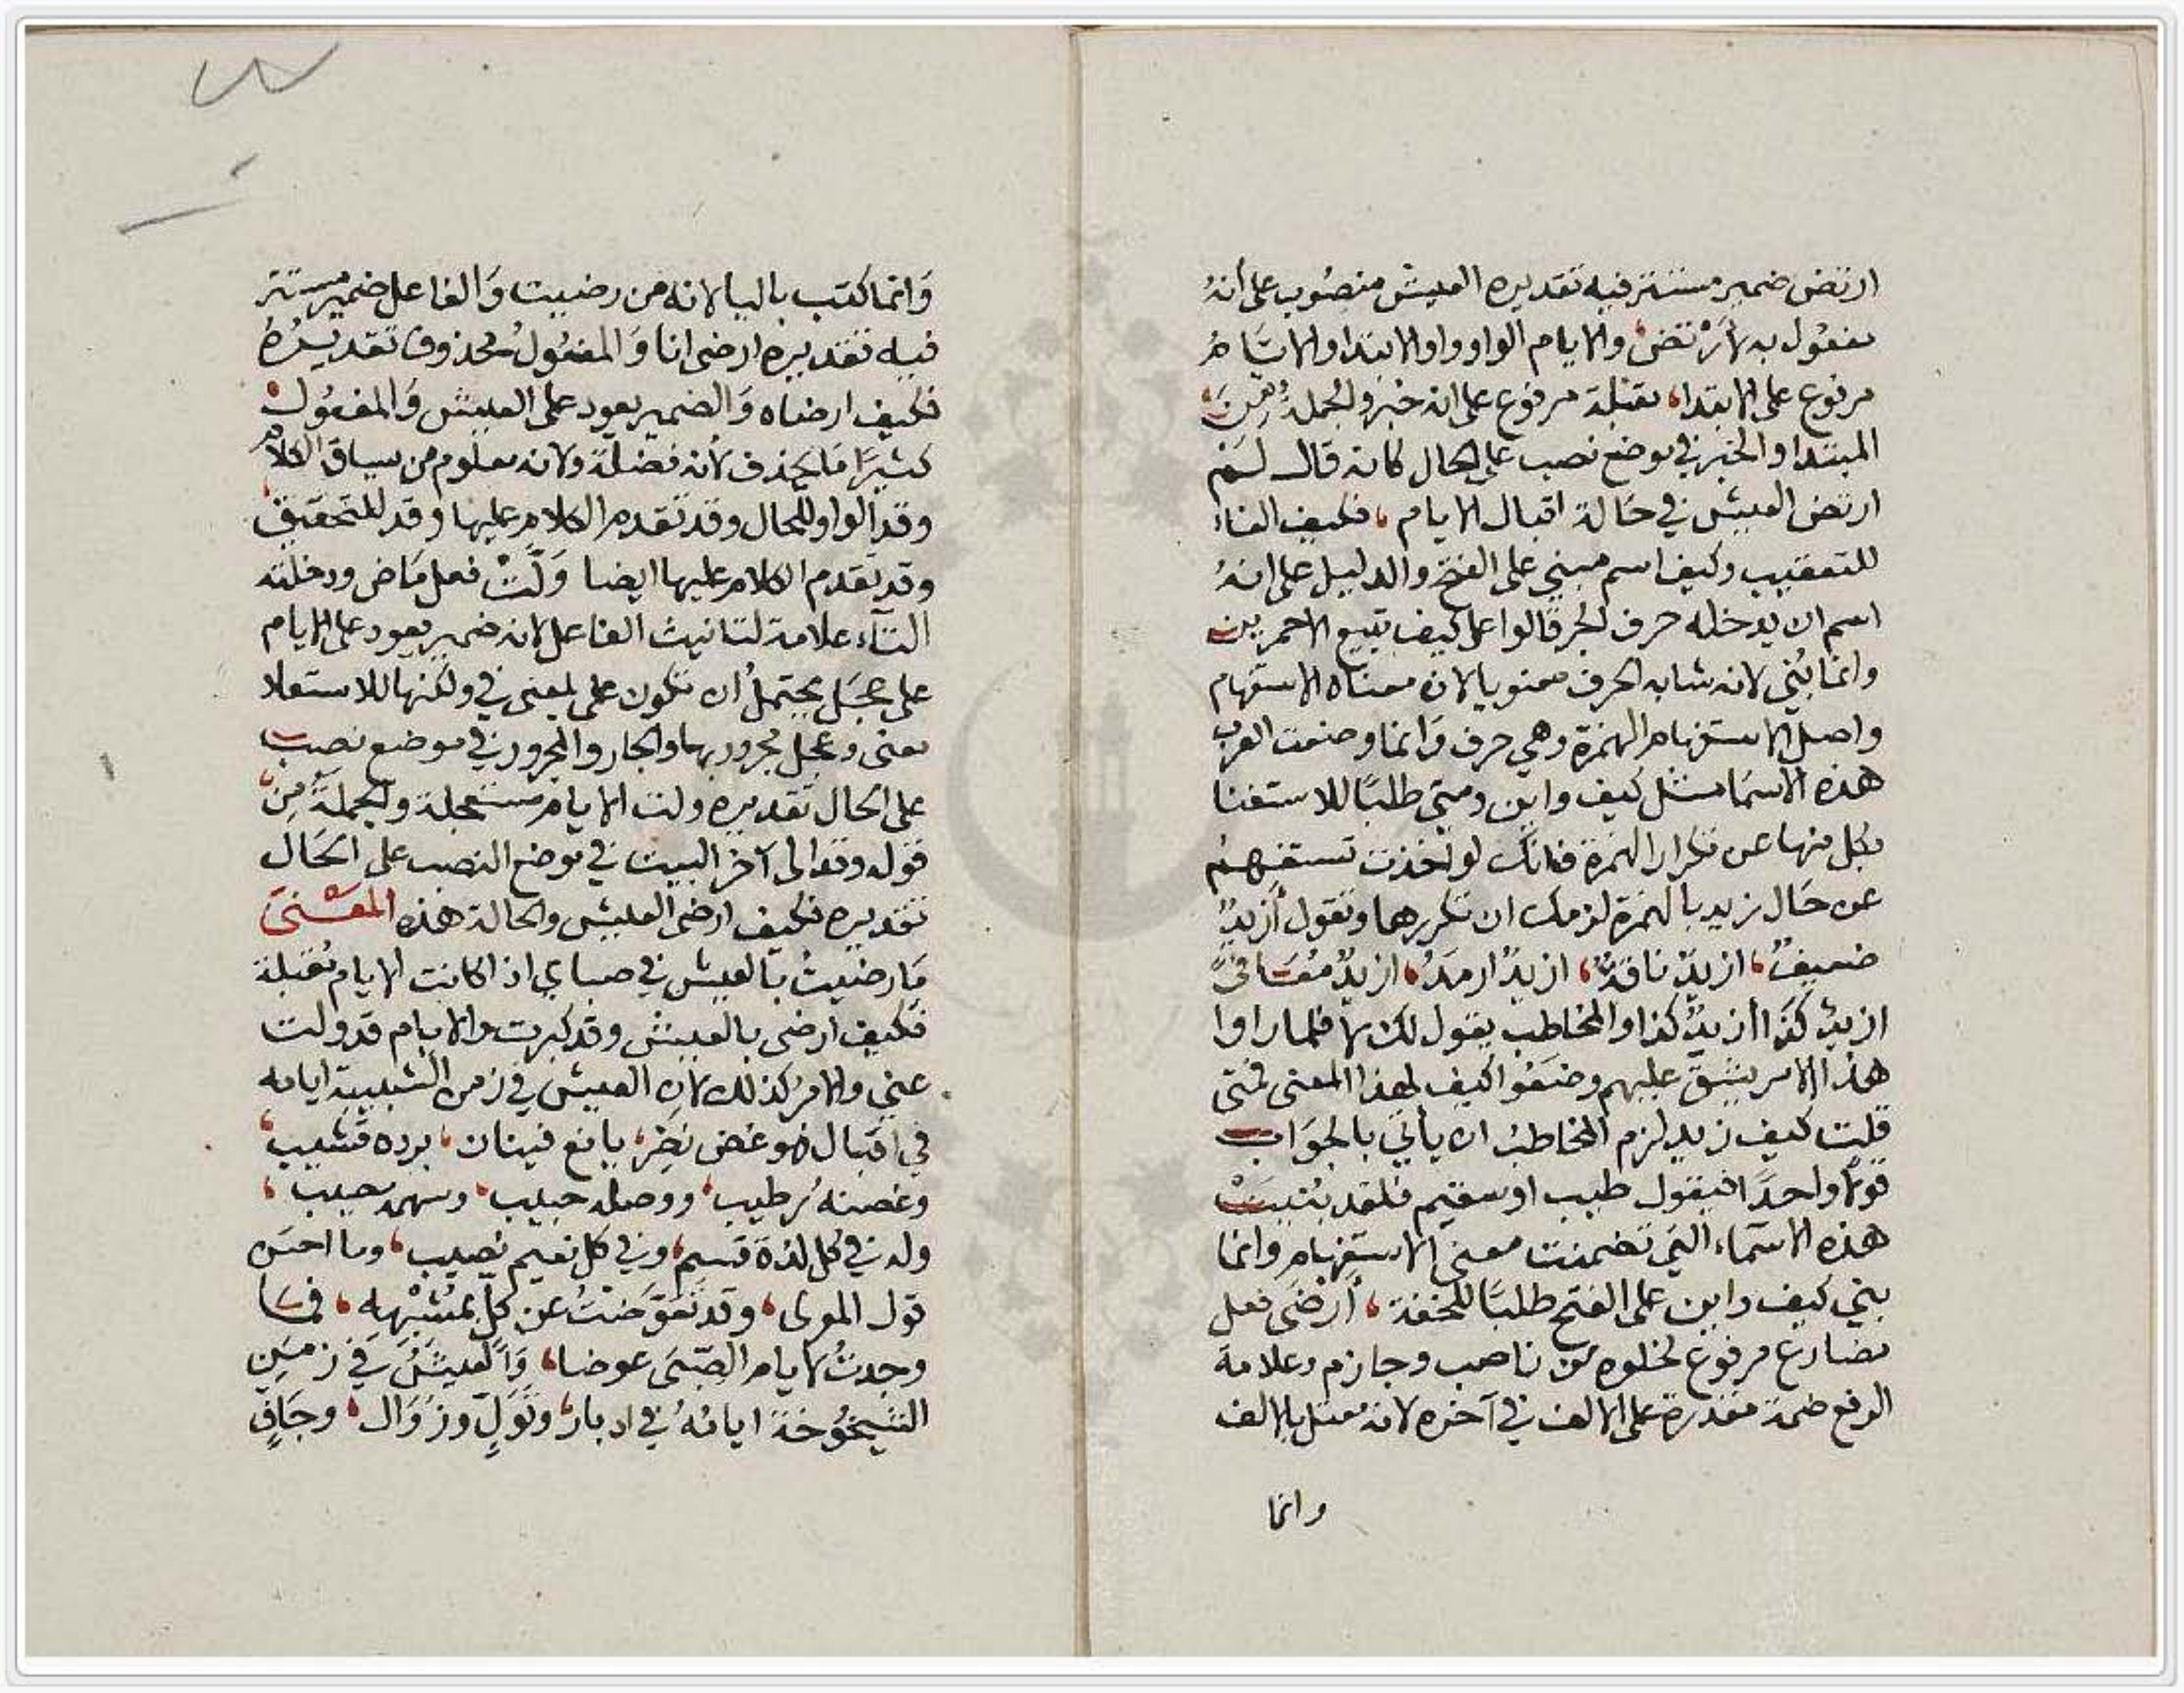 ارتض ضمير مستتر فيه تقديره العيش منصوب على أنهُ
مفعول به لأرْتض، والايام الواو واو الابتدا والايام
مرفوع على الابتدا، مقبلة مرفوع على انه خبر والجملة من
المبتدا والخبر في موضع نصب على الحال كانه قال لم
ارتض العيش في حَالة اقبال الايام، فكيف الفاءُ
للتعقيب وكيف اسم مبني على الفتح والدليل على انهُ
اسم ان يدخله حرف الجر قالوا على كيف تبيع الاحمرين
وانما بُني لانه شابه الحرف معنويا لان معناه الاستفهام
واصل الاستفهام الهمزة وهي حرف وَانما وضعت العرب
هذه الاسمَا مثل كيف واين ومتى طلبًا للاستغنا
بكل منها عن تكرار الهمزة فانك لو اخذت تستفهمُ
عن حَال زيد بالهمزة لزمك ان تكررها وتقول أزيدٌ
ضعيفٌ، ازيدٌ ناقهٌ، ازيدٌ ارمدُ، ازيدٌ مُعَافىً
ازيدٌ كذا أزيدٌ كذا والمخاطب يقول لك لا فلما راوا
هذا الامر يشقّ عليهم وضَعُوا كيف لهذا المعنى فمتى
قلت كيف زيد لزم المخاطبُ ان يأتي بالجوَاب
قولاً واحدًا فيقول طيب او سقيم فلقد بُنيَتْ
هذه الاسمَاء التي تضمنت معنى الاستفهام وانما
بني كيف واين على الفتح طلبًا للخفة، أرْضَى فعل
مضارع مرفوع لخلوه من ناصب وجازم وعلامة
الرفع ضمة مقدرة على الالف في آخره لانه معتل بالالف
وانما
وَانما كتب باليا لانه من رضيت وَالفاعل ضمير مستتر
فيه تقديره ارضى انا وَالمفعُولُ محذوف تقديرُهُ
فكيف ارضاه وَالضمير يعود على العيش وَالمفعُول
كثيرًا مَا يحذف لأنه فضلة ولانه معلُوم من سياق الكلام
وقد الواو للحال وقد تقدم الكلام عليها وقد للتحقيق
وقد تقدم الكلام عليها ايضا وَلّتْ فعل مَاض ودخلته
التآء علامة لتانيث الفاعل لانه ضمير يعود على الايام
على عجَل يحتملُ أن تكون على بمعنى في ولكنها للاستعلا
معنى وعجل مجرور بها والجار والمجرور في موضع نصب
على الحال تقديره ولت الايام مستعجلة والجملةُ من
قوله وقد الى آخر البيت في موضع النصب على الحَال
تقديره فكيف ارضى العيش والحالة هذه المعْنىَ
مَا رضيتُ بالعيش في صباي اذا كانت الايام مُقبلة
فكيف ارضى بالعيش وقد كبرت والايام قد ولت
عني والامرُ كذلك لان العيش في زمن الشبيبة ايامه
في اقبال فهو غض نضِرٌ، يانع فينان، برده قشيب،
وغصنهُ رطيب، ووصله حبيب، وسهمه مصيب،
وله في كل لذة قسم، وفي كل نعيم نصيب، وما احسَن
قول المولى، وقد تعَوّضْتُ عن كلّ بمُشْبِهِه، فمَا
وجدتُ لايام الصّبَى عوضا، وَالعيْشُ في زمَن
الشيخُوخة ايامُهُ في ادبارٍ، وتَوَلٍّ وزوَال، وجَافٍ